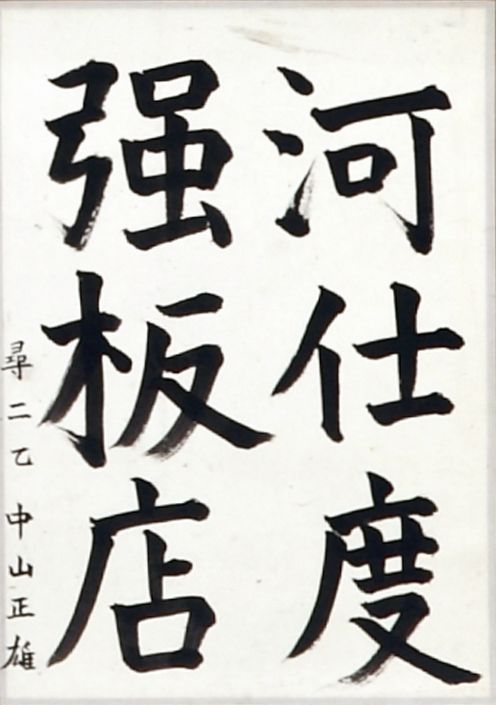 河仕度
强板店
尋二乙 中山正雄